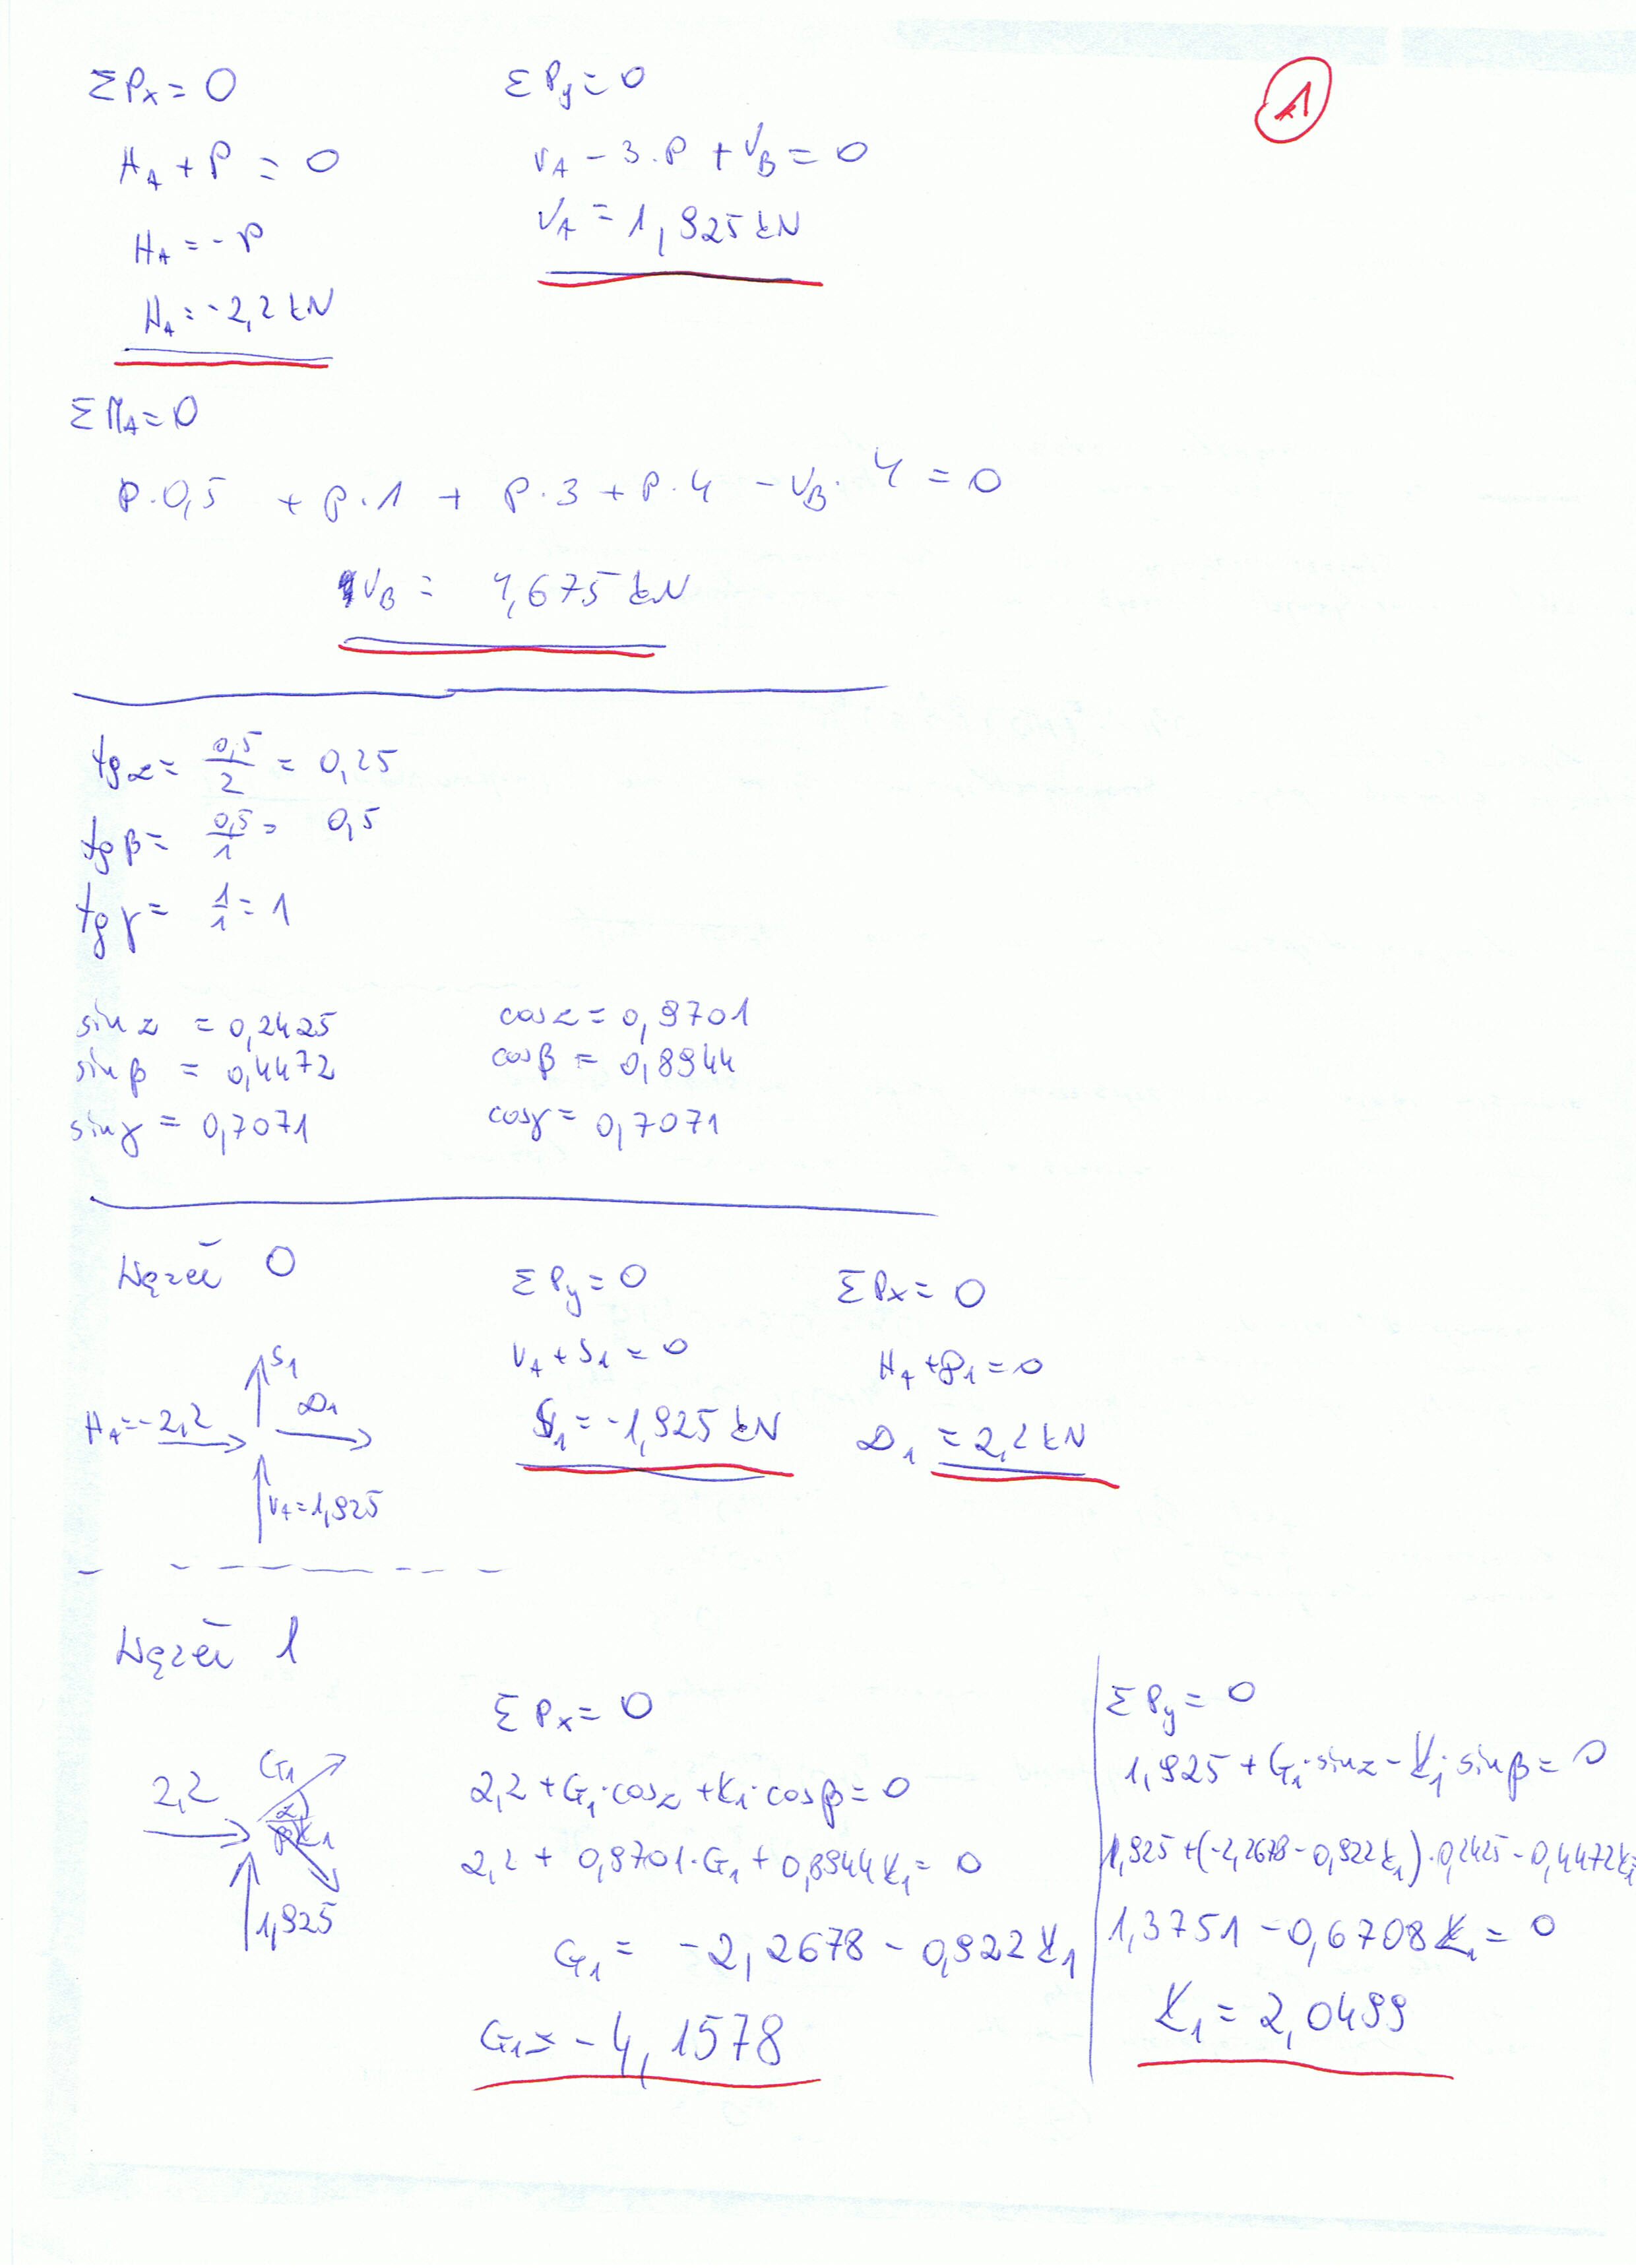 1
ΣPx = 0
H_A + P = 0
H_A = -P
H_A = -2,2 kN
ΣPy = 0
V_A - 3·P + V_B = 0
V_A = 1,925 kN
ΣM_A = 0
P·0,5 + P·1 + P·3 + P·4 - V_B·4 = 0
V_B = 4,675 kN
tg α = 0,5/2 = 0,25
tg β = 0,5/1 = 0,5
tg γ = 1/1 = 1
sin α = 0,2425 cos α = 0,9701
sin β = 0,4472 cos β = 0,8944
sin γ = 0,7071 cos γ = 0,7071
Węzeł 0
S1
D1
H_A = -2,2
V_A = 1,925
ΣPy = 0
V_A + S1 = 0
S1 = -1,925 kN
ΣPx = 0
H_A + D1 = 0
D1 = 2,2 kN
Węzeł 1
G1
2,2
α
β K1
1,925
ΣPx = 0
2,2 + G1·cos α + K1·cos β = 0
2,2 + 0,9701·G1 + 0,8944 K1 = 0
G1 = -2,2678 - 0,922 K1
G1 = -4,1578
ΣPy = 0
1,925 + G1·sin α - K1·sin β = 0
1,925 + (-2,2678 - 0,922 K1)·0,2425 - 0,4472 K1 =
1,3751 - 0,6708 K1 = 0
K1 = 2,0499